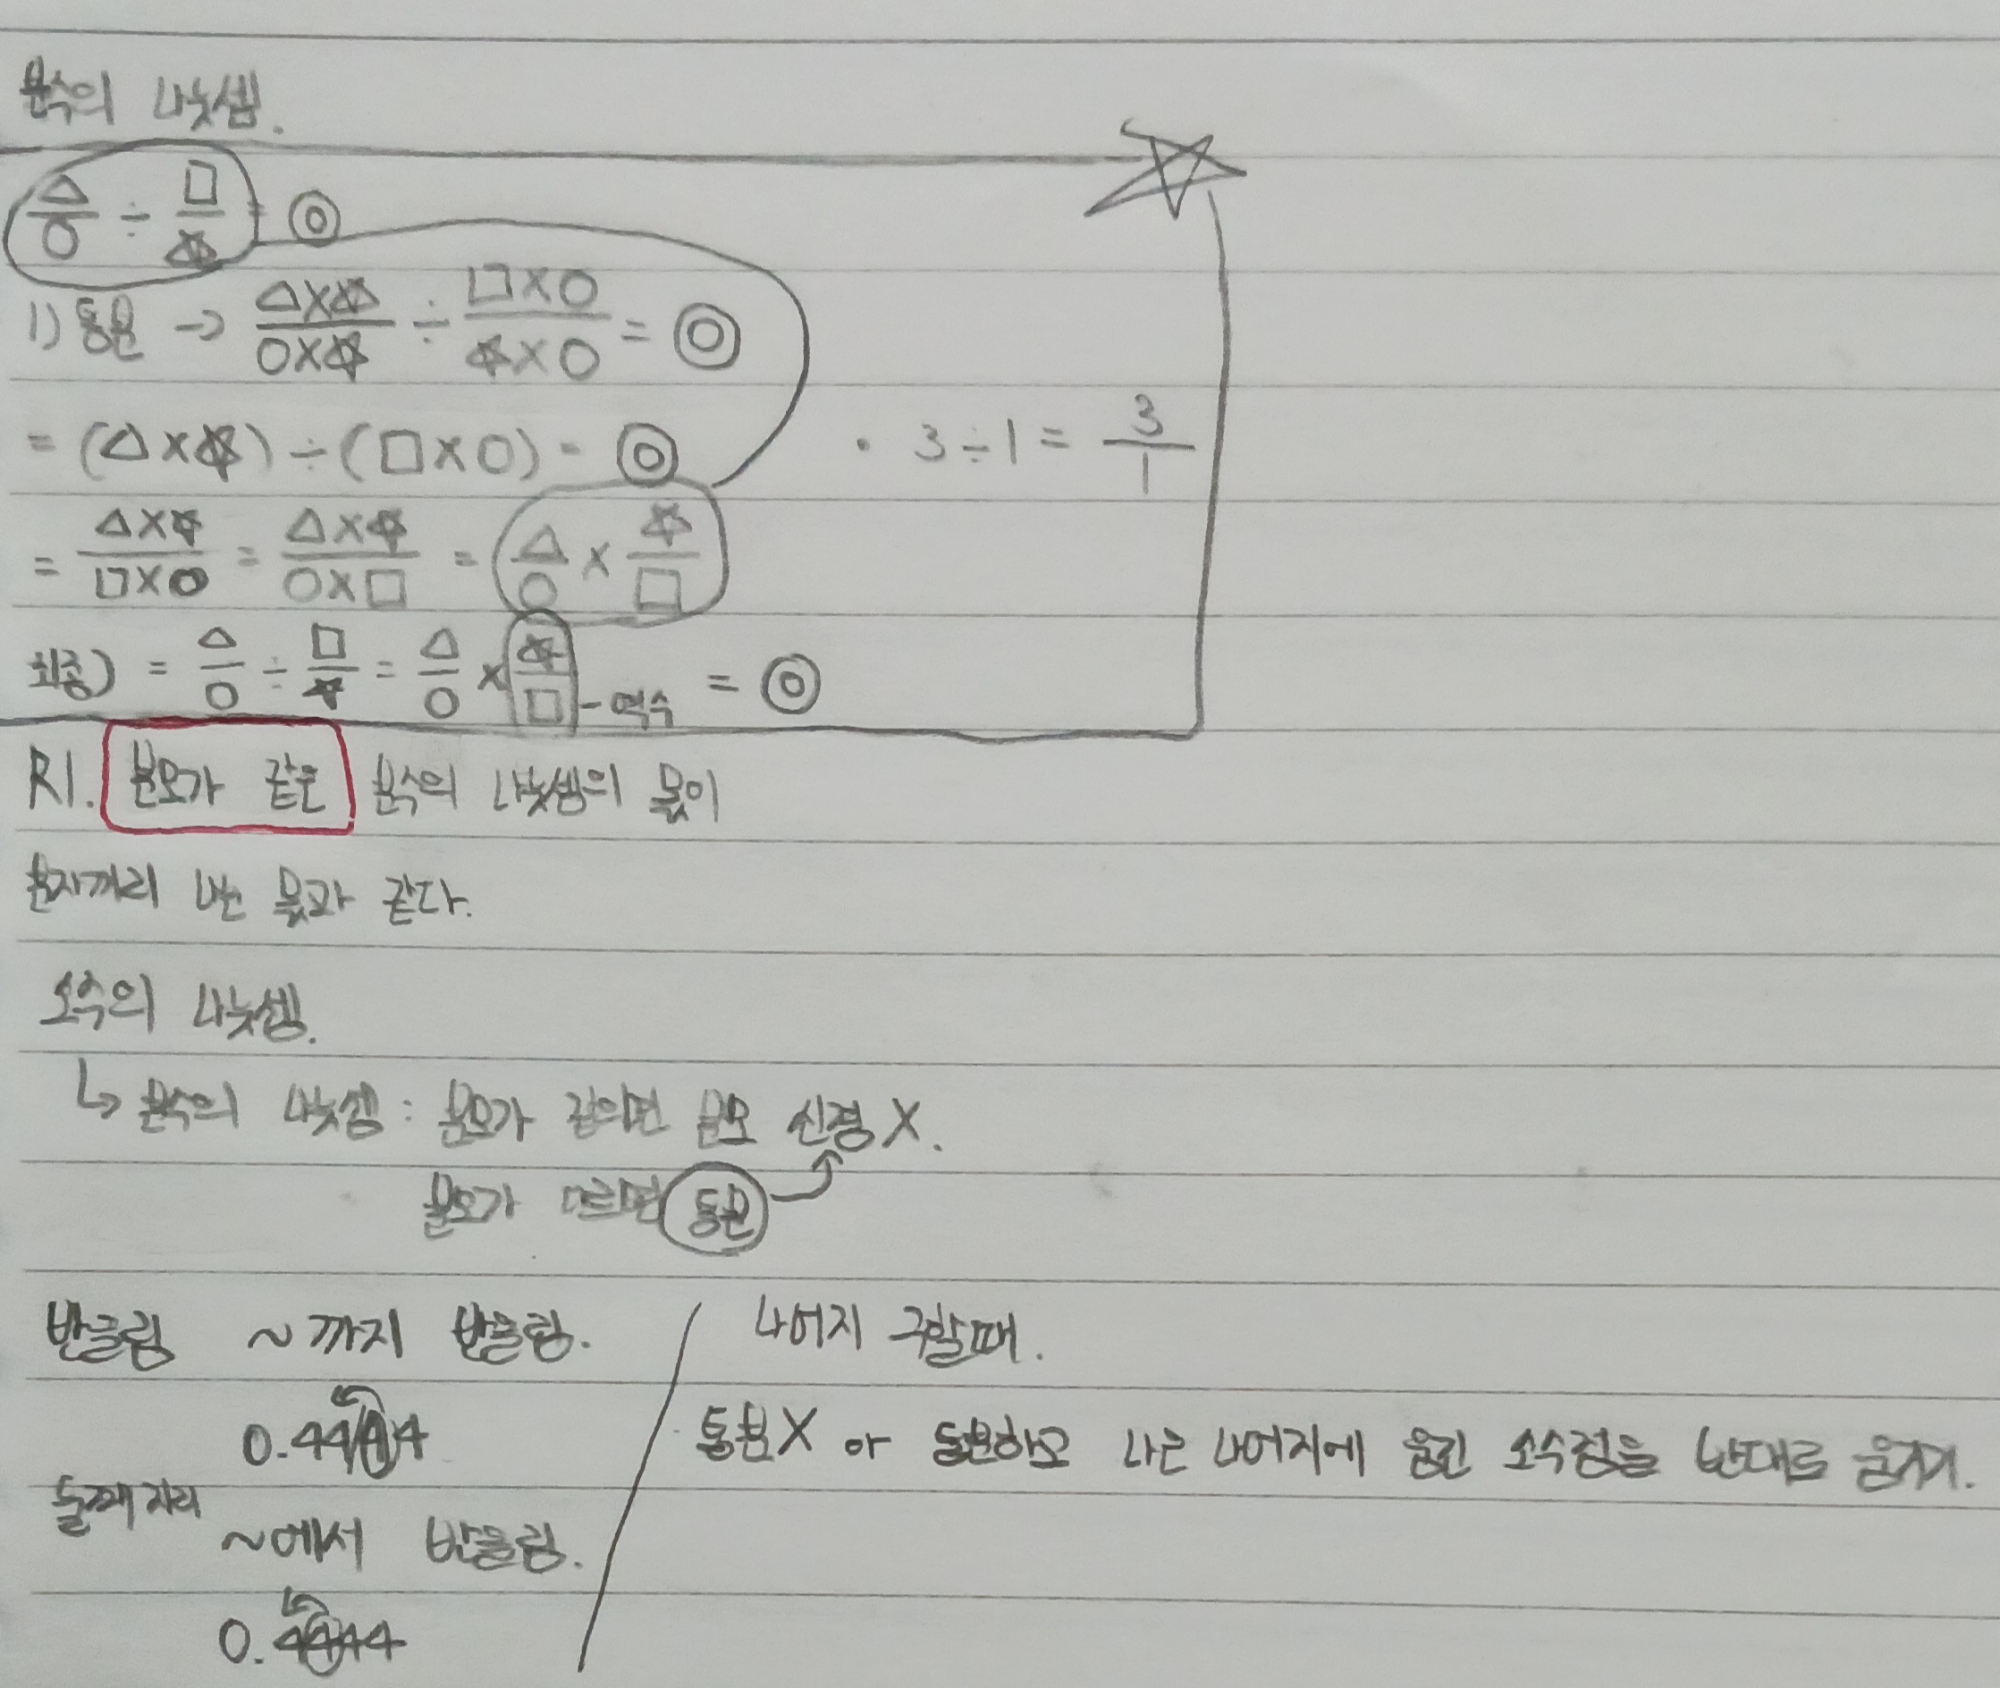 분수의 나눗셈.
△/○ ÷ □/☆ = ◎
1) 통분 → △×☆/○×☆ ÷ □×○/☆×○ = ◎
= (△×☆) ÷ (□×○) = ◎
· 3÷1 = 3/1
= △×☆/□×○ = △×☆/○×□ = △/○ × ☆/□
최종) = △/○ ÷ □/☆ = △/○ × ☆/□ - 역수 = ◎
R1. 분모가 같은 분수의 나눗셈의 몫이
분자끼리 나눈 몫과 같다.
소수의 나눗셈.
↳ 분수의 나눗셈 : 분모가 같으면 분모 신경 X.
분모가 다르면 통분
반올림 ~까지 반올림.
0.4444
둘째 자리
~에서 반올림.
0.4444
나머지 구할때.
통분X or 통분하고 나온 나머지에 옮긴 소수점을 반대로 옮기기.